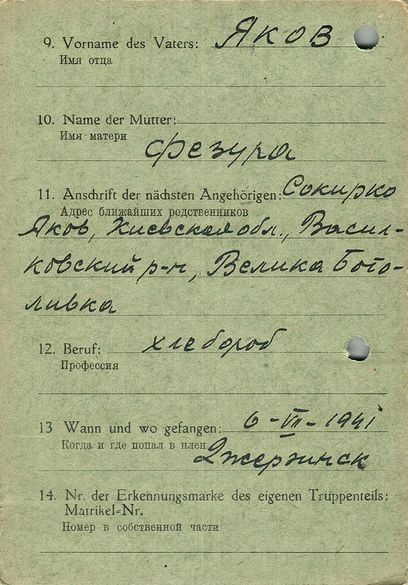 9. Vorname des Vaters: Яков
Имя отца
10. Name der Mutter:
Имя матери
Фезура
11. Anschrift der nächsten Angehörigen: Сокирко
Адрес ближайших родственников
Яков, Киевская обл., Васил-
ковский р-н, Велика Бого-
ливка
12. Beruf: хлебороб
Профессия
13 Wann und wo gefangen: 6-VII-1941
Когда и где попал в плен
Джержинск
14. Nr. der Erkennungsmarke des eigenen Truppenteils:
Matrikel-Nr.
Номер в собственной части